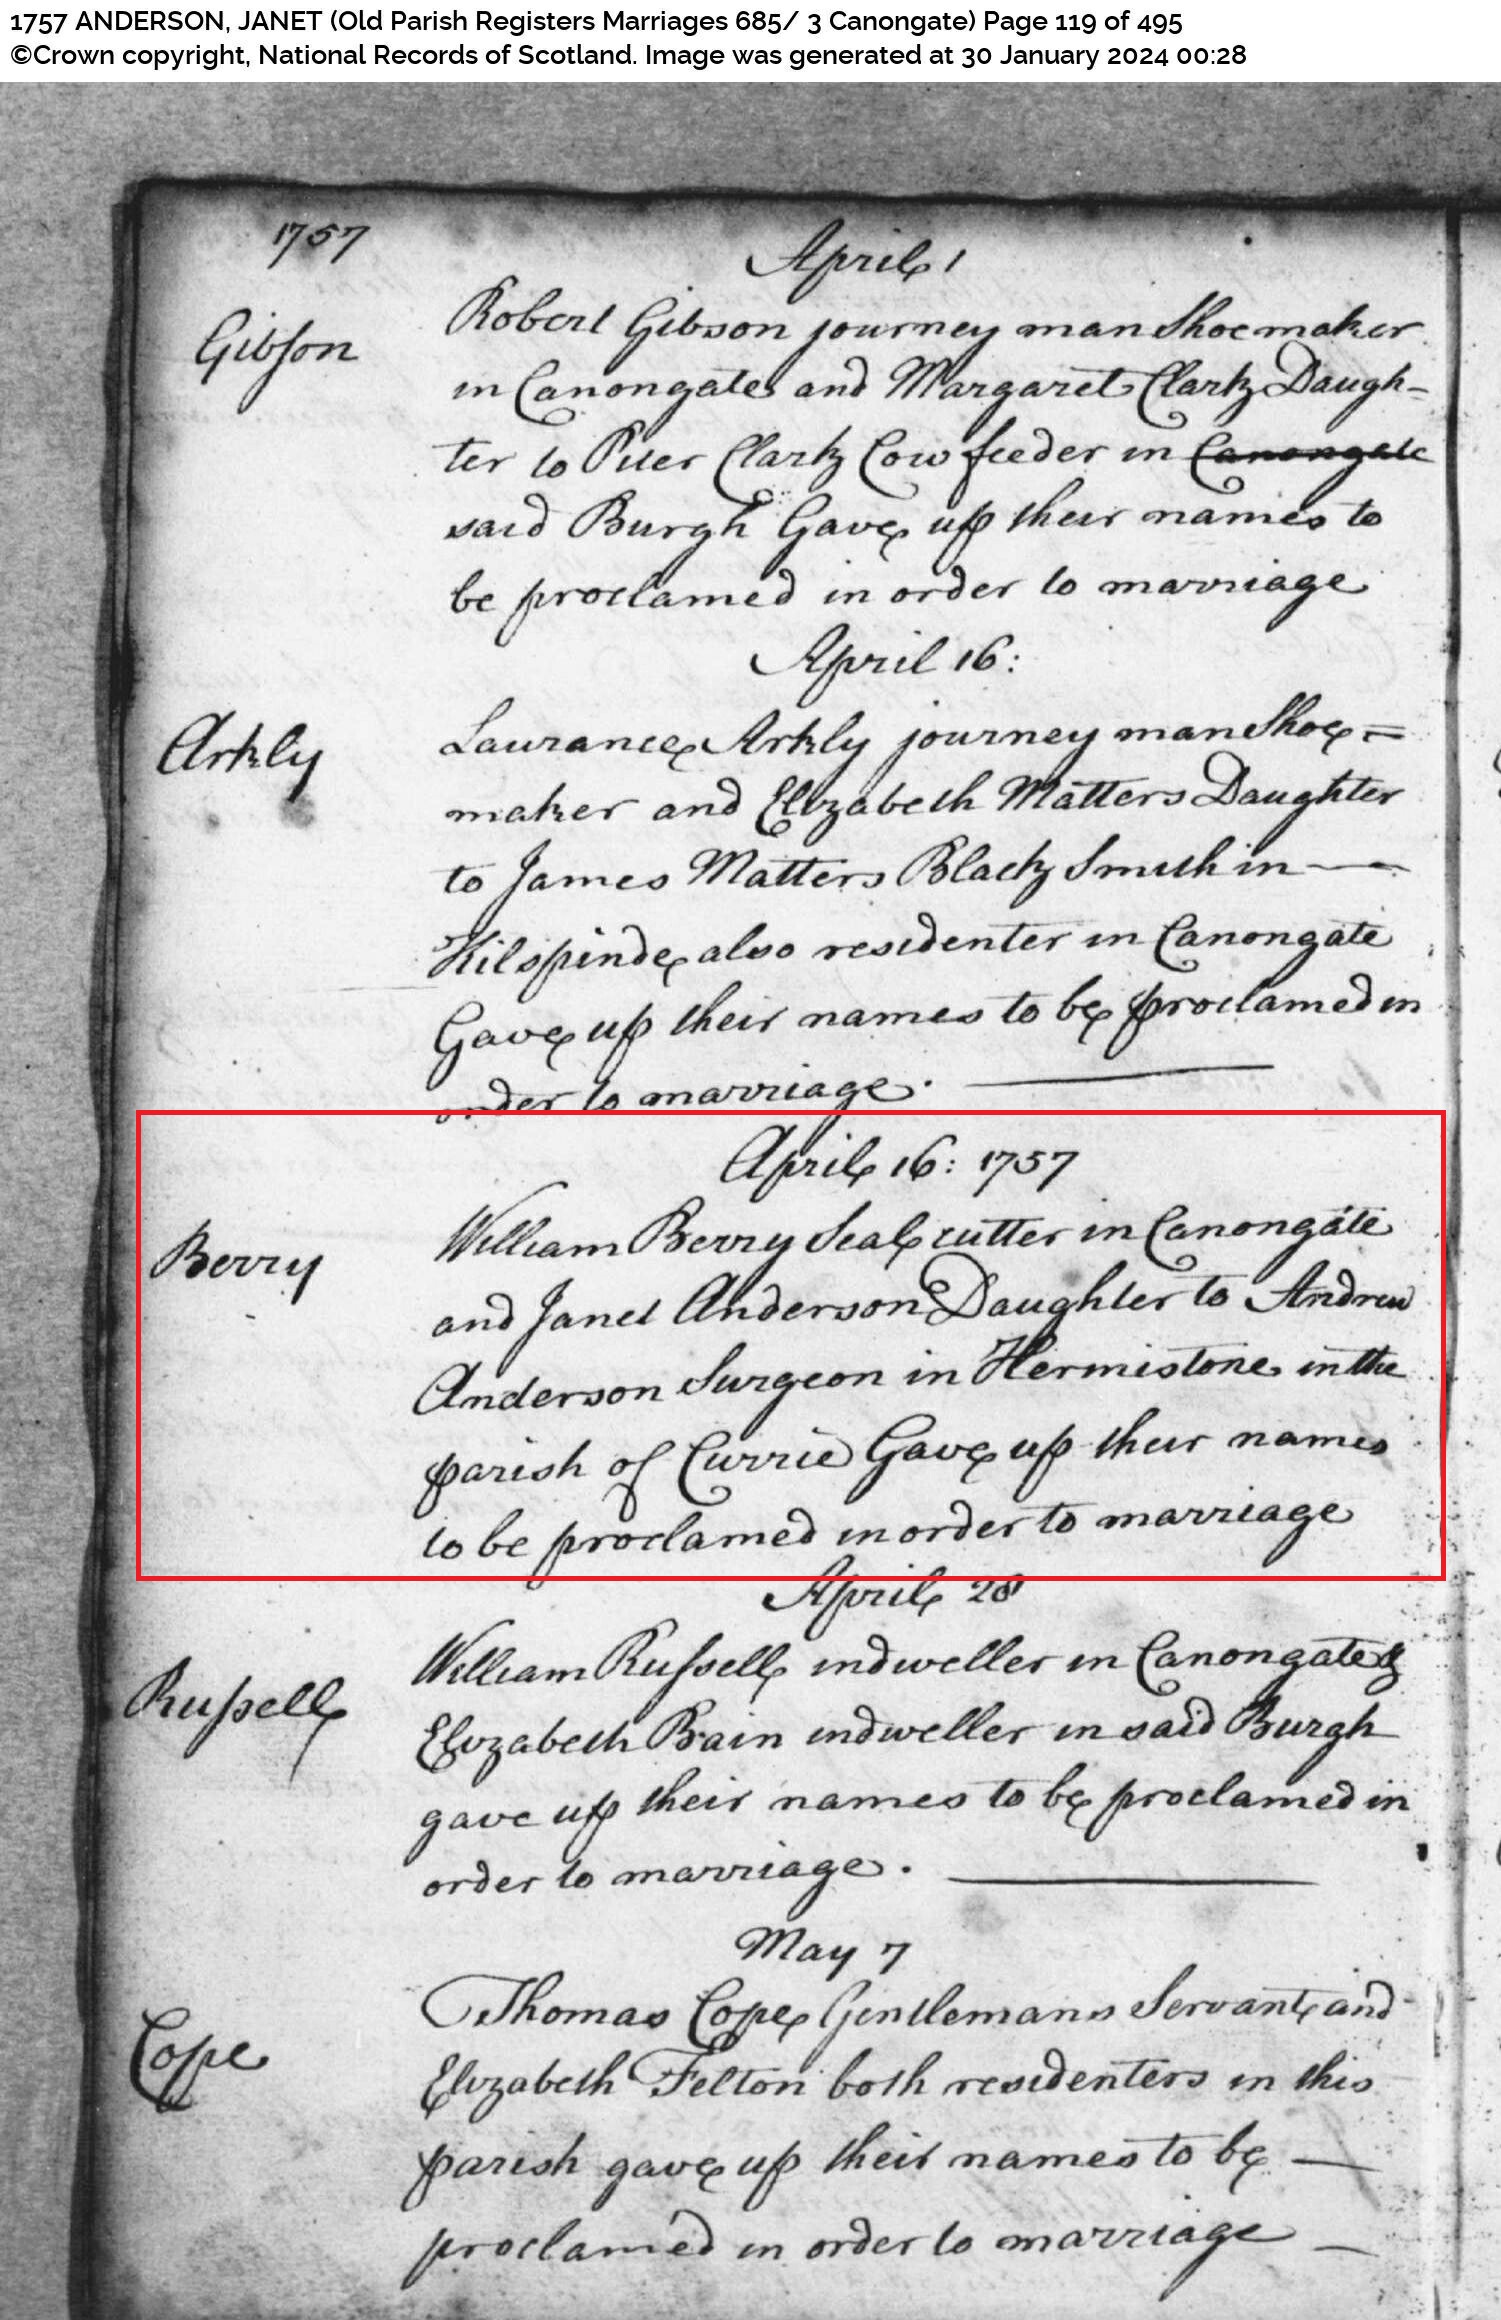 1757 ANDERSON, JANET (Old Parish Registers Marriages 685/ 3 Canongate) Page 119 of 495
©Crown copyright, National Records of Scotland. Image was generated at 30 January 2024 00:28
1757
April 1
Gibson
Robert Gibson journey man Shoemaker
in Canongate and Margaret Clark Daugh-
ter to Peter Clark Cow feeder in Canongate
said Burgh Gave up their names to
be proclamed in order to marriage
April 16:
Arkly
Laurance Arkly journey man Shoe=
maker and Elizabeth Matters Daughter
to James Matters Black Smith in
Kilspinde also residenter in Canongate
Gave up their names to be proclamed in
order to marriage.
April 16: 1757
Berry
William Berry Seal cutter in Canongate
and Janet Anderson Daughter to Andrew
Anderson Surgeon in Hermistone in the
parish of Currie Gave up their names
to be proclamed in order to marriage
April 28
Russell
William Russell indweller in Canongate &
Elizabeth Bain indweller in said Burgh
gave up their names to be proclamed in
order to marriage.
May 7
Cope
Thomas Cope Gentlemans Servant and
Elizabeth Felton both residenters in this
parish gave up their names to be
proclamed in order to marriage